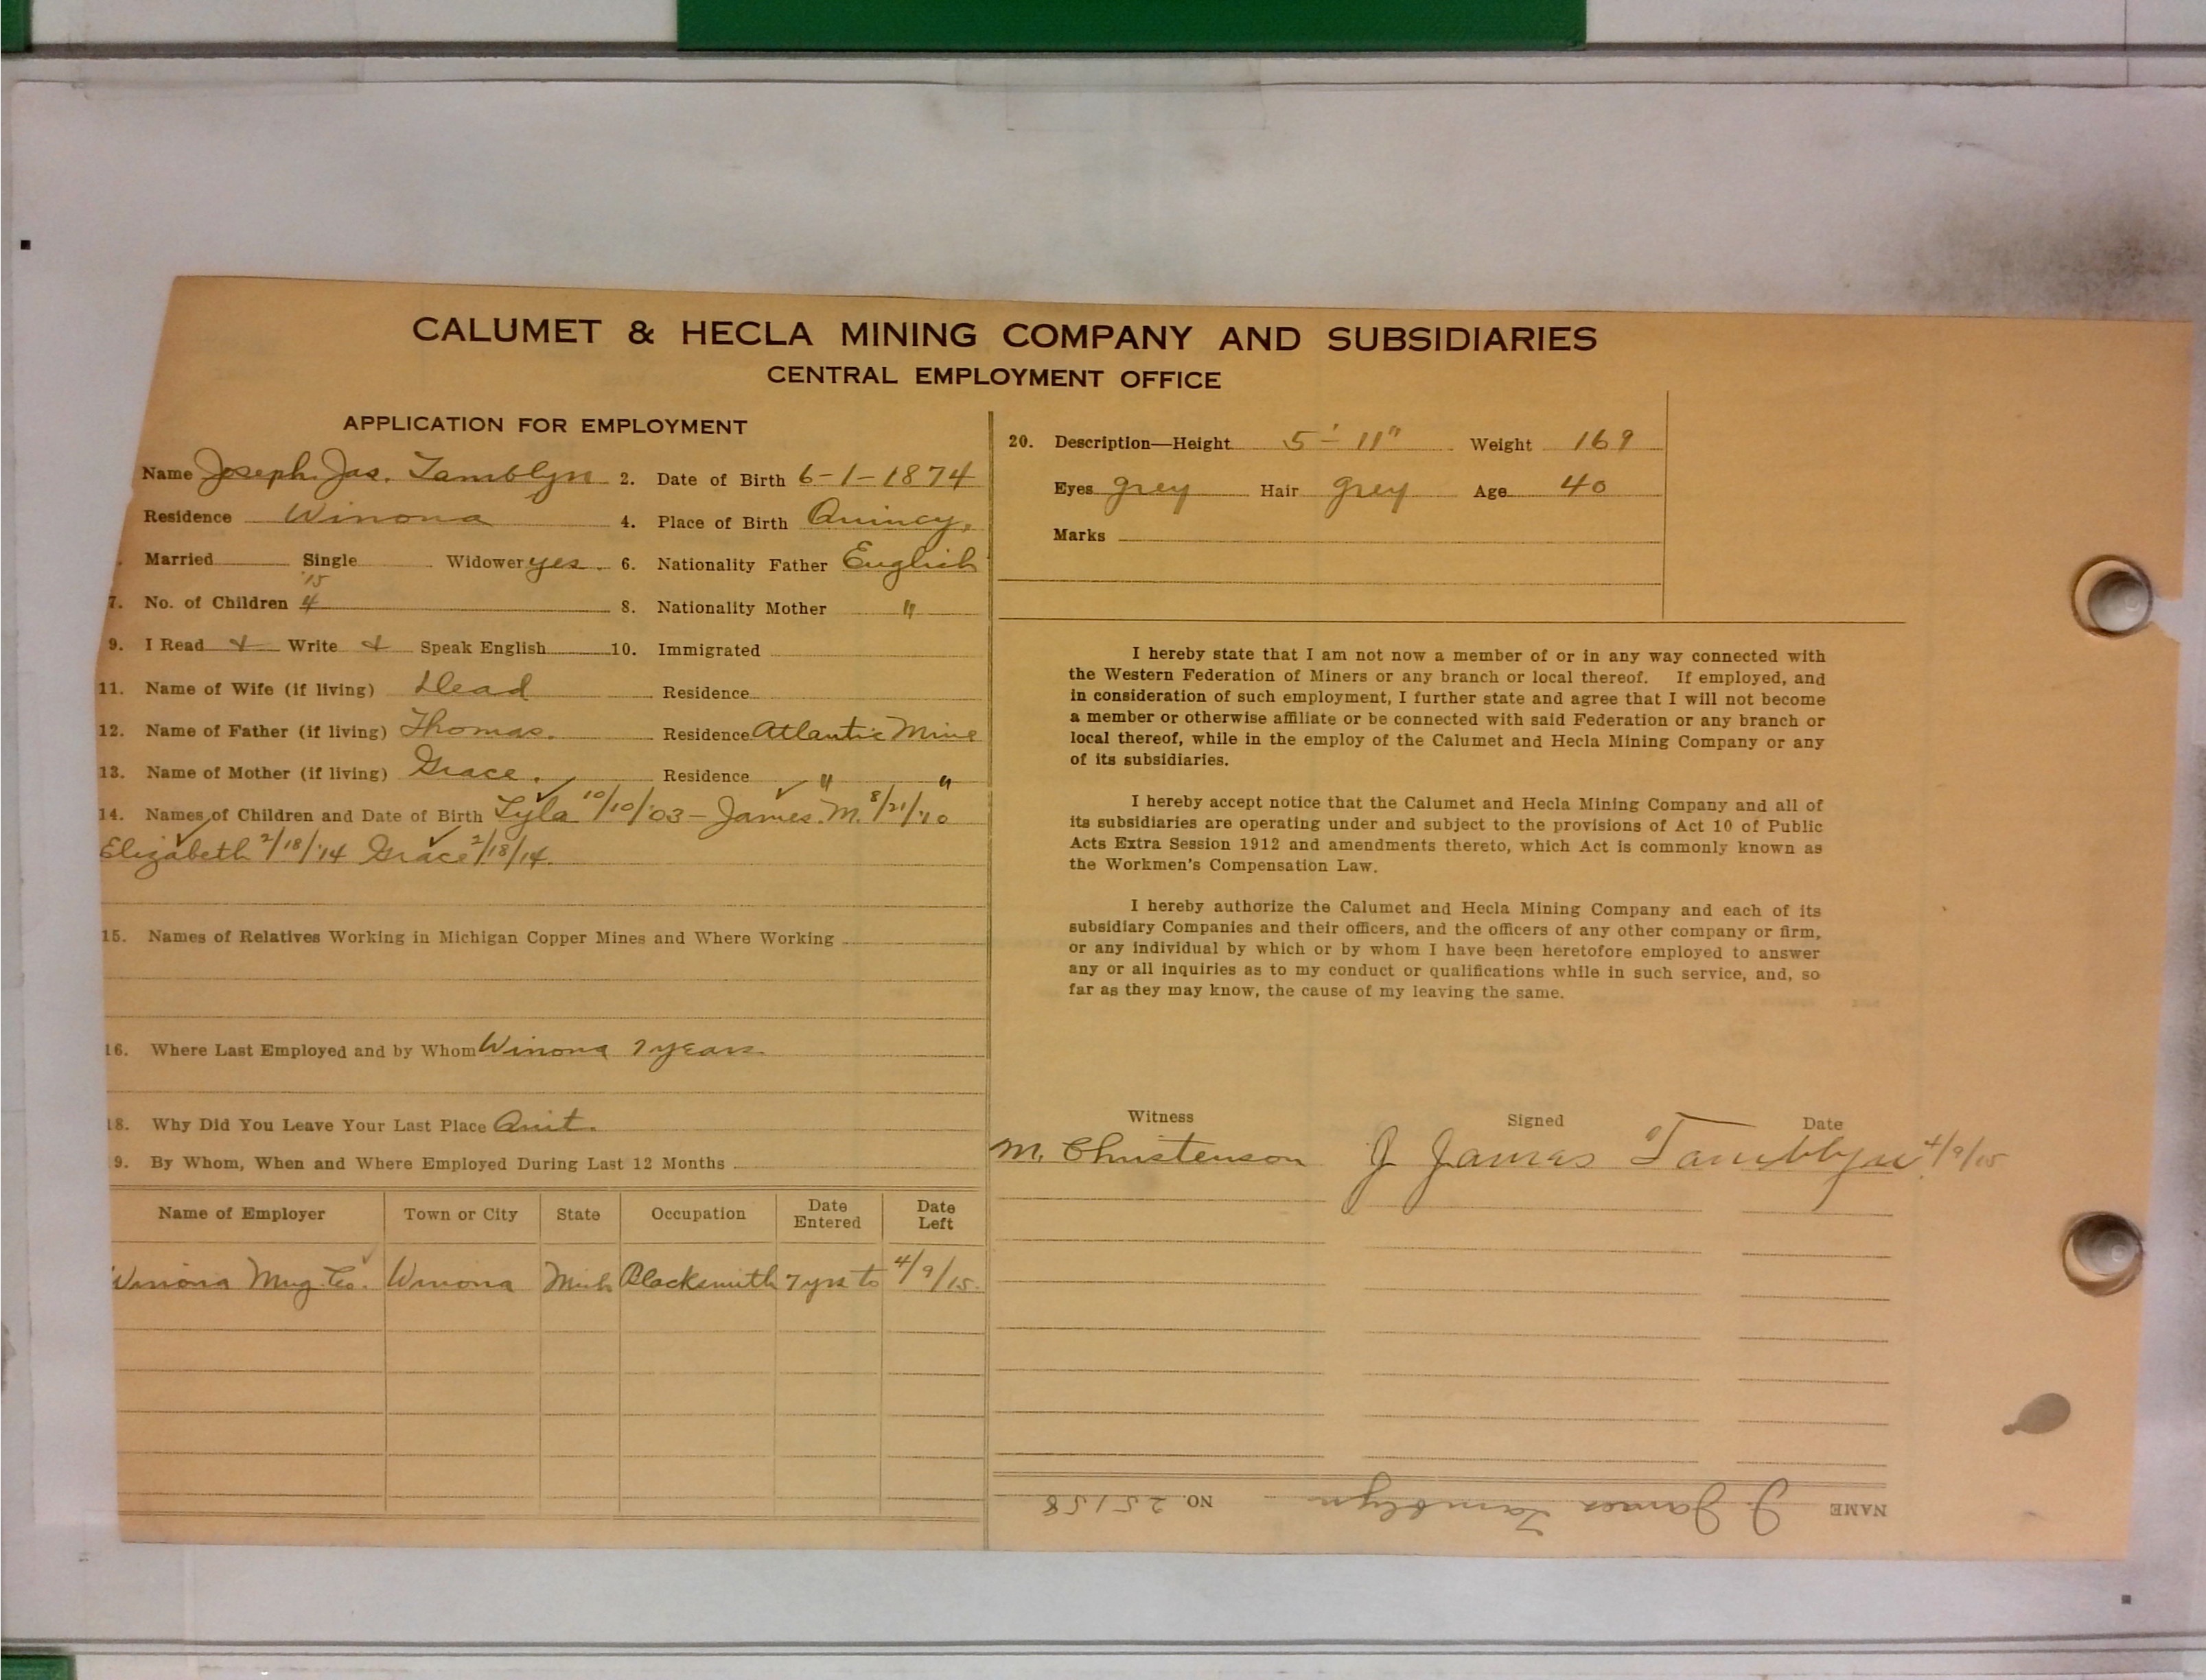 CALUMET & HECLA MINING COMPANY AND SUBSIDIARIES
CENTRAL EMPLOYMENT OFFICE
APPLICATION FOR EMPLOYMENT
Name Joseph Jas. Tamblyn 2. Date of Birth 6-1-1874
Residence Winona 4. Place of Birth Quincy,
Married Single Widower yes. 6. Nationality Father English
'15
7. No. of Children 4 8. Nationality Mother "
9. I Read + Write + Speak English 10. Immigrated
11. Name of Wife (if living) Dead Residence
12. Name of Father (if living) Thomas. Residence Atlantic Mine
13. Name of Mother (if living) Grace. Residence " "
14. Names of Children and Date of Birth Lyla 10/10/'03 - James. M. 8/21/'10
Elizabeth 2/18/'14 Grace 2/18/14.
15. Names of Relatives Working in Michigan Copper Mines and Where Working
16. Where Last Employed and by Whom Winona 7 years
18. Why Did You Leave Your Last Place Quit.
9. By Whom, When and Where Employed During Last 12 Months
Name of Employer Town or City State Occupation Date Entered Date Left
Winona Mng. Co. Winona Mich Blacksmith 7 yrs to 4/9/15.
20. Description—Height 5'-11" Weight 169
Eyes grey Hair grey Age 40
Marks
I hereby state that I am not now a member of or in any way connected with
the Western Federation of Miners or any branch or local thereof. If employed, and
in consideration of such employment, I further state and agree that I will not become
a member or otherwise affiliate or be connected with said Federation or any branch or
local thereof, while in the employ of the Calumet and Hecla Mining Company or any
of its subsidiaries.
I hereby accept notice that the Calumet and Hecla Mining Company and all of
its subsidiaries are operating under and subject to the provisions of Act 10 of Public
Acts Extra Session 1912 and amendments thereto, which Act is commonly known as
the Workmen's Compensation Law.
I hereby authorize the Calumet and Hecla Mining Company and each of its
subsidiary Companies and their officers, and the officers of any other company or firm,
or any individual by which or by whom I have been heretofore employed to answer
any or all inquiries as to my conduct or qualifications while in such service, and, so
far as they may know, the cause of my leaving the same.
Witness Signed Date
M. Christenson J James Tamblyn 4/9/15
NAME J. James Tamblyn NO. 25158